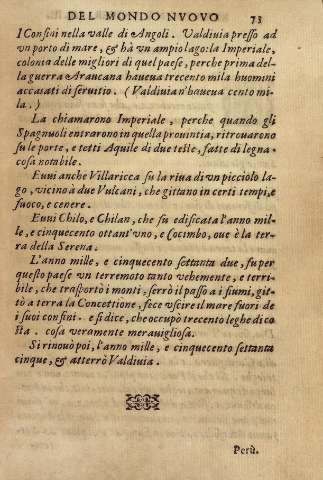 DEL MONDO NVOVO 73
I Confini nella valle di Angoli. Valdiuia presso ad
vn porto di mare, & hà vn ampio lago: la Imperiale,
colonia delle migliori di quel paese, perche prima del-
la guerra Araucana haueua trecento mila huomini
accasati di seruitio. (Valdiuia n'haueua cento mi-
la.)
La chiamarono Imperiale, perche quando gli
Spagnuoli entrarono in quella prouintia, ritrouarono
su le porte, e tetti Aquile di due teste, fatte di legna.
cosa notabile.
Euui anche Villaricca su la riua di vn picciolo la-
go, vicino à due Vulcani, che gittano in certi tempi, e
fuoco, e cenere.
Euui Chilo, e Chilan, che fu edificata l'anno mil-
le, e cinquecento ottant'vno, e Cocimbo, oue è la ter-
ra della Serena.
L'anno mille, e cinquecento settanta due, fu per
questo paese vn terremoto tanto vehemente, e terri-
bile, che trasportò i monti, serrò il passo a i fiumi, git-
tò a terra la Concettione, fece vscire il mare fuori de
i suoi confini. e si dice, che occupò trecento leghe di co
sta. cosa veramente merauigliosa.
Si rinouò poi, l'anno mille, e cinquecento settanta
cinque, & atterrò Valdiuia.
Perù.